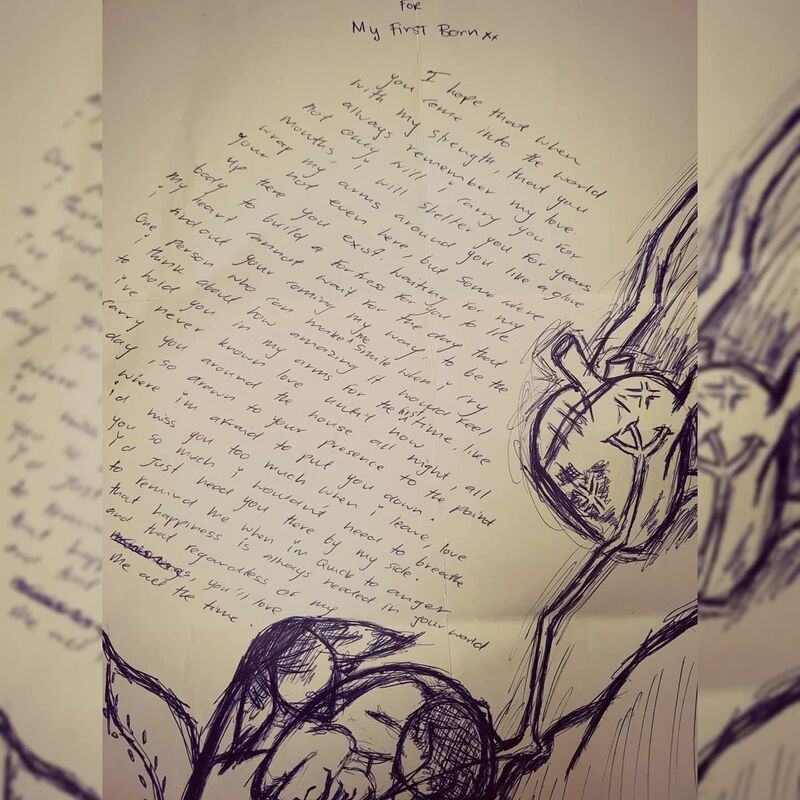 FOR
My First Born xx
I hope that when
you come into the world
with my strength, that you
always remember my love.
Not only will i carry you for
Months, i will shelter you for years
wrap my arms around you like a glove
Your not even here, but some where
up there you exist. waiting for my
body to build a fortress for you to lie
my heart cannot wait for the day that
i findout your coming my way, to be the
One person who can make me smile when i cry
i think about how amazing it would feel,
to hold you in my arms for the first time, like
i've never known love until now
carry you around the house all night, all
day, so drawn to your presence to the point
where i'm afraid to put you down.
i'd miss you too much when i leave, love
you so much i wouldn't need to breathe
I'd just need you there by my side.
to remind me when i'm quick to anger
that happiness is always needed in your world
and that regardless of my
you'll love
me all the time.